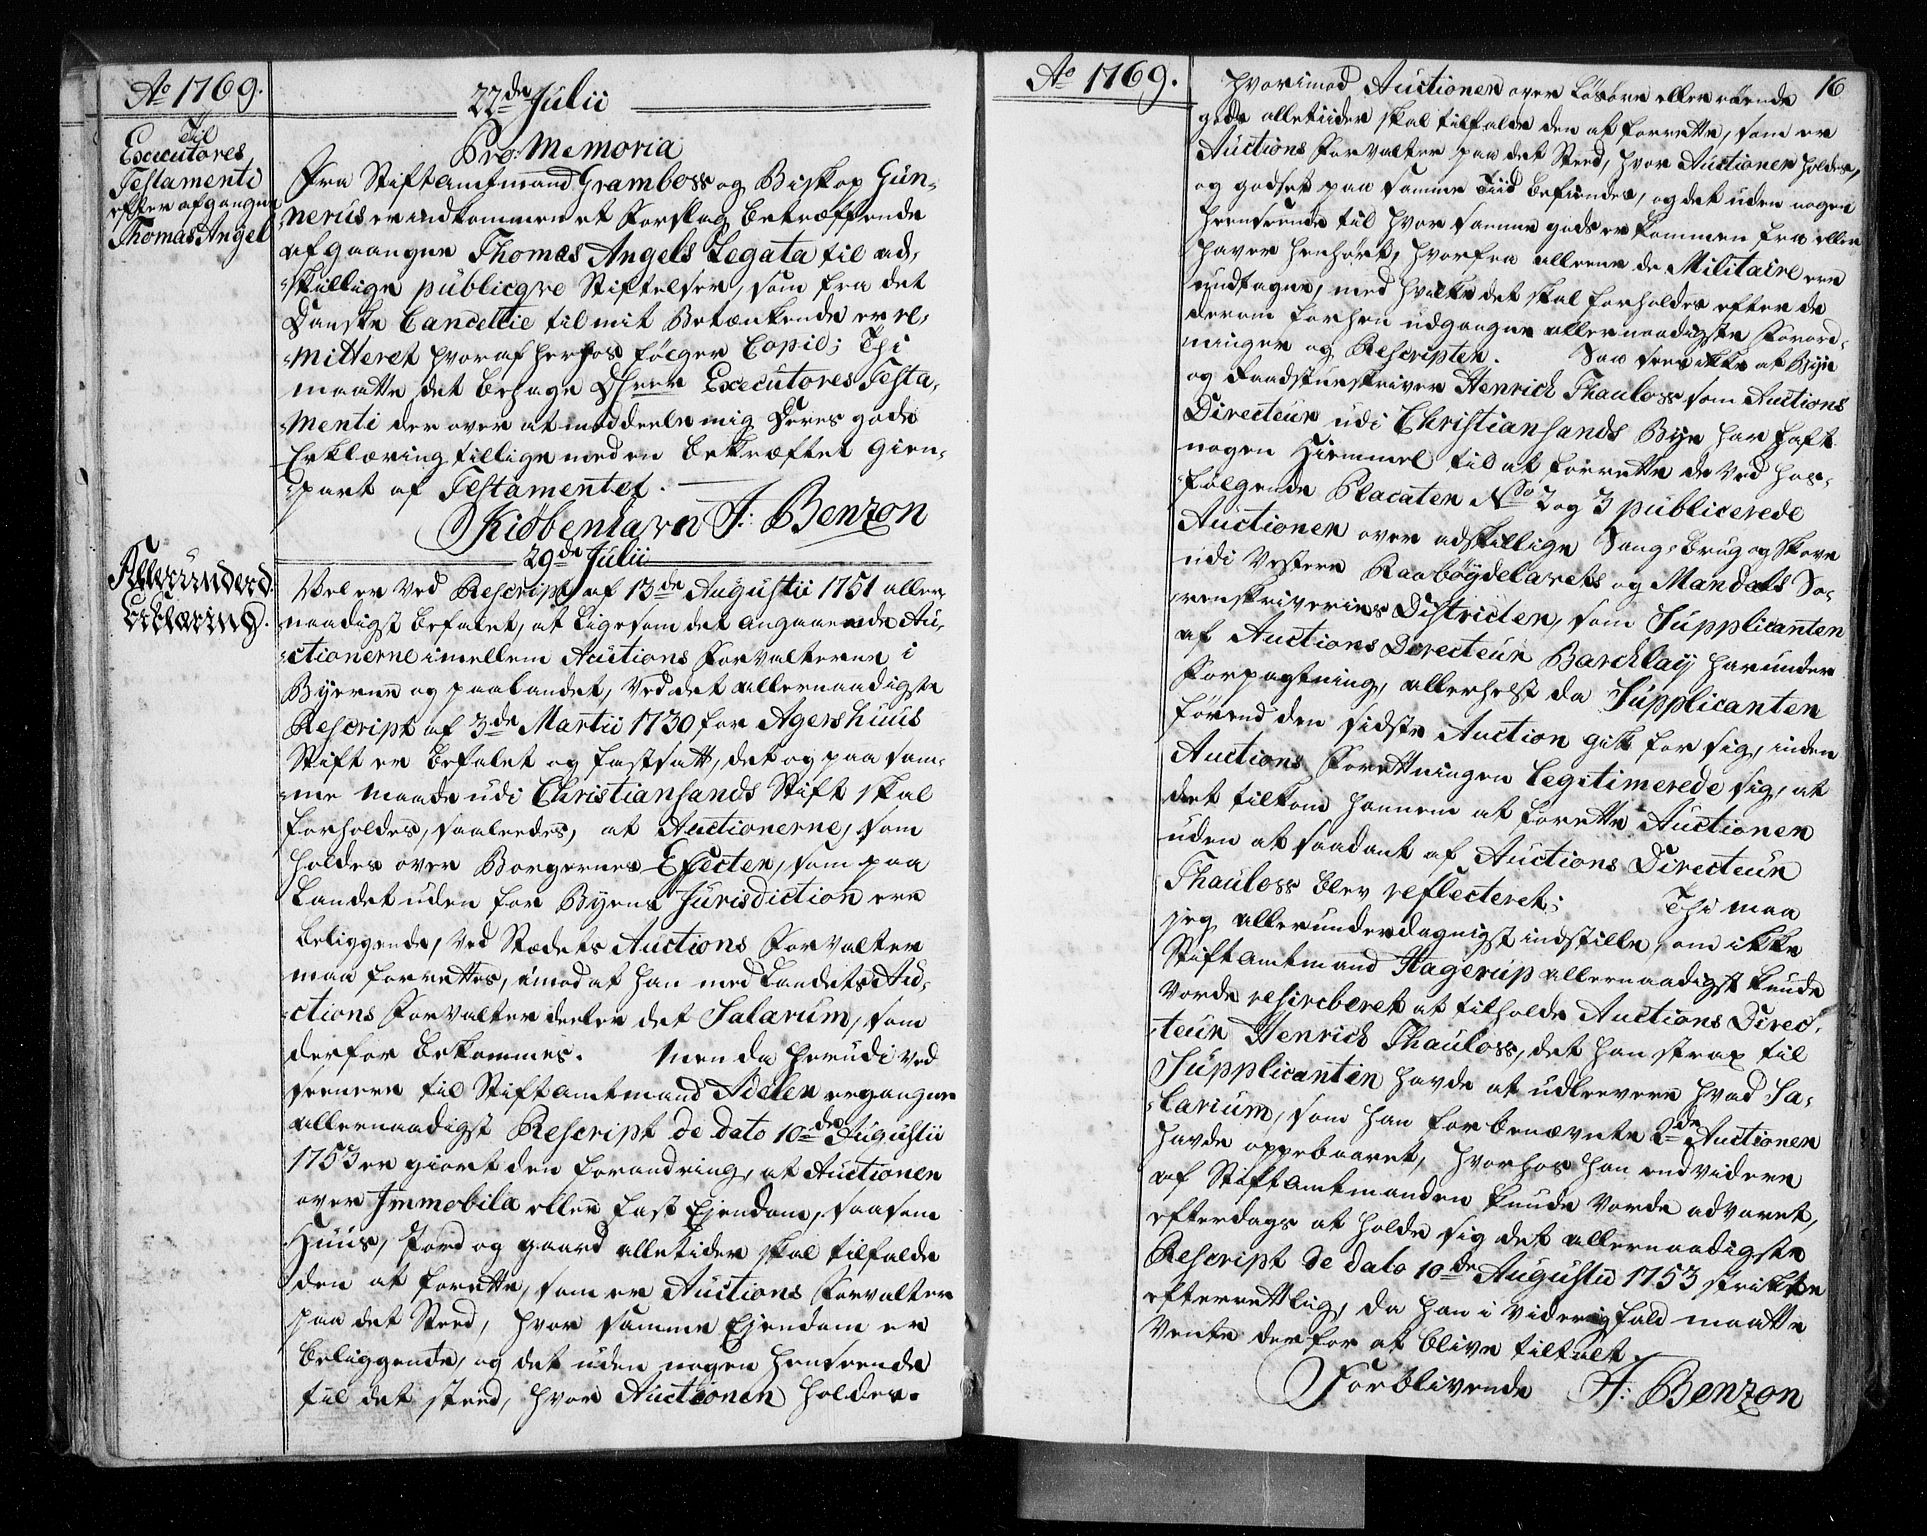 Ao 1769.
22de Julii
Til
Executores
Testamenti
efter afgangne
Thomas Angel
Pro Memoria
Fra Stiftamtmand Grambow og Biskop Gun-
nerus er indkommen et Forslag betræffende
afgaangne Thomas Angels Legata til ad-
skillige publicqve Stiftelser, som fra det
Danske Cancellie til mit Betænkende er re-
mitteret hvoraf herhos følger Copie; Thi
maatte det behage Dhrrer Executores Testa-
menti der over at meddeele mig Deres gode
Erklæring tillige med en bekræftet Gien-
part af Testamentet.
Kiøbenhavn F: Benzon
29de Julii
Allerunderd.
Erklæring.
Vel er ved Rescript af 13de Augustii 1751 aller-
naadigst befalet, at ligesom det angaaende Au-
ctionerne imellem Auctions Forvalterne i
Byerne og paa Landet, ved det allernaadigste
Rescript af 3de Martii 1730 for Agershuus
Stift er befalet og fastsatt, det og paa sam-
me maade udi Christiansands Stift skal
forholdes, saaledes, at Auctionerne, som
holdes over Borgernes Effecter, som paa
Landet uden for Byens Jurisdiction ere
beliggende, ved Stædets Auctions Forvalter
maa forrettes, imod at han med Landets Au-
ctions Forvalter deeler det Salarum, som
derfor bekommes. Men da herudi ved
seenere til Stiftamtmand Adeler ergangne
allernaadigst Rescript de dato 10de Augustii
1753 er giort den forandring, at Auctionen
over Immobila eller fast Ejendom, saasom
Huus, Jord og gaard alletider skal tilfalde
den at forrette, som er Auctions Forvalter
paa det Steed, hvor samme Ejendom er
beliggende, og det uden nogen henseende
til det steed, hvor Auctionen holdes.
Ao 1769.
16
hvorimod Auctionen over Løsøre eller rørende
gods alletiider skal tilfalde den at forrette, som er
Auctions Forvalter paa det Steed, hvor Auctionen holdes,
og godset paa samme Tiid befindes, og det uden nogen
henseende til hvor samme gods er kommen fra eller
haver henhørt, hvorfra alleene de Militaire ere
undtagne, med hvilke det skal forholdes efter de
derom forhen udgangne allernaadigste Forord-
ninger og Rescripter. Saa sees ikke at Bye
og Raadstueskriver Henrich Thaulow som Auctions
Directeur udi Christiansands Bye har haft
nogen Hiemmel til at forrette de ved hos-
følgende Placater No 2 og 3 publicerede
Auctioner over adskillige Saug-brug og Skove
udi Vestere Raabøydelavets og Mandals So-
renskriveries Districter, som Supplicanten
af Auctions Directeur Barchlay har under
Forpagtning, allerhelst da Supplicanten
førend den sidste Auction gik for sig, inden
Auctions Forrettningen legitimerede sig, at
det tilkom hannem at forrette Auctionen
uden at saadant af Auctions Directeur
Thaulow blev reflecteret; Thi maa
jeg allerunderdagnigst indstille, om ikke
Stiftamtmand Hagerup allernaadigst kunde
vorde rescriberet at tilholde Auctions Direc-
teur Henrich Thaulow, det han strax til
Supplicanten havde at udleevere hvad Sa-
larium, som han for benævnte 2de Auctioner
havde oppebaaret, hvorhos han endvidere
af Stiftamtmanden kunde vorde advaret,
efterdags at holde sig det allernaadigste
Rescript de dato 10de Augustii 1753 strikte
efterrettlig, da han i viderigfald maatte
vente derfor at blive tiltalt.
Forblivende F: Benzon